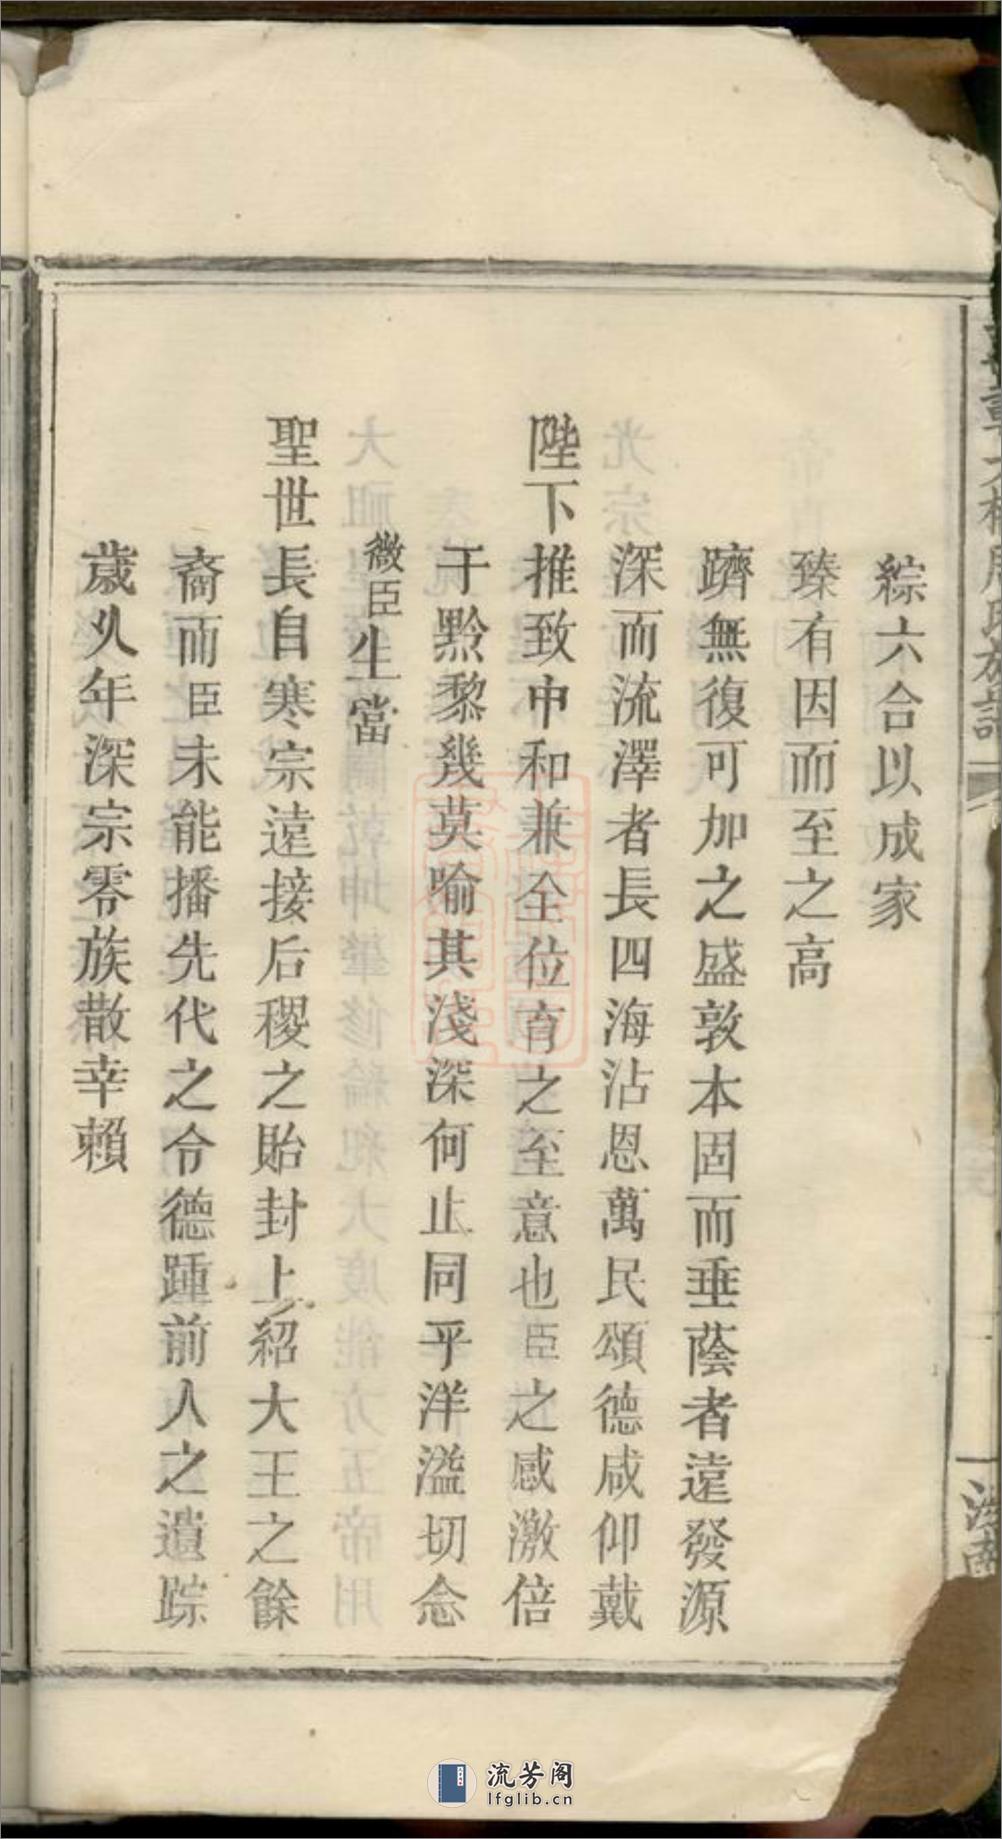 綜六合以成家
臻有因而至之高
躋無復可加之盛敦本固而垂蔭者遠發源
深而流澤者長四海沾恩萬民頌德咸仰戴
陛下推致中和兼全位育之至意也臣之感激倍
于黔黎幾莫喻其淺深何止同乎洋溢切念
微臣生當
聖世長自寒宗遠接后稷之貽封上紹大王之餘
裔而臣未能播先代之令德踵前人之遺踪
歲久年深宗零族散幸賴
周氏族譜
流芳阁
lfglib.cn